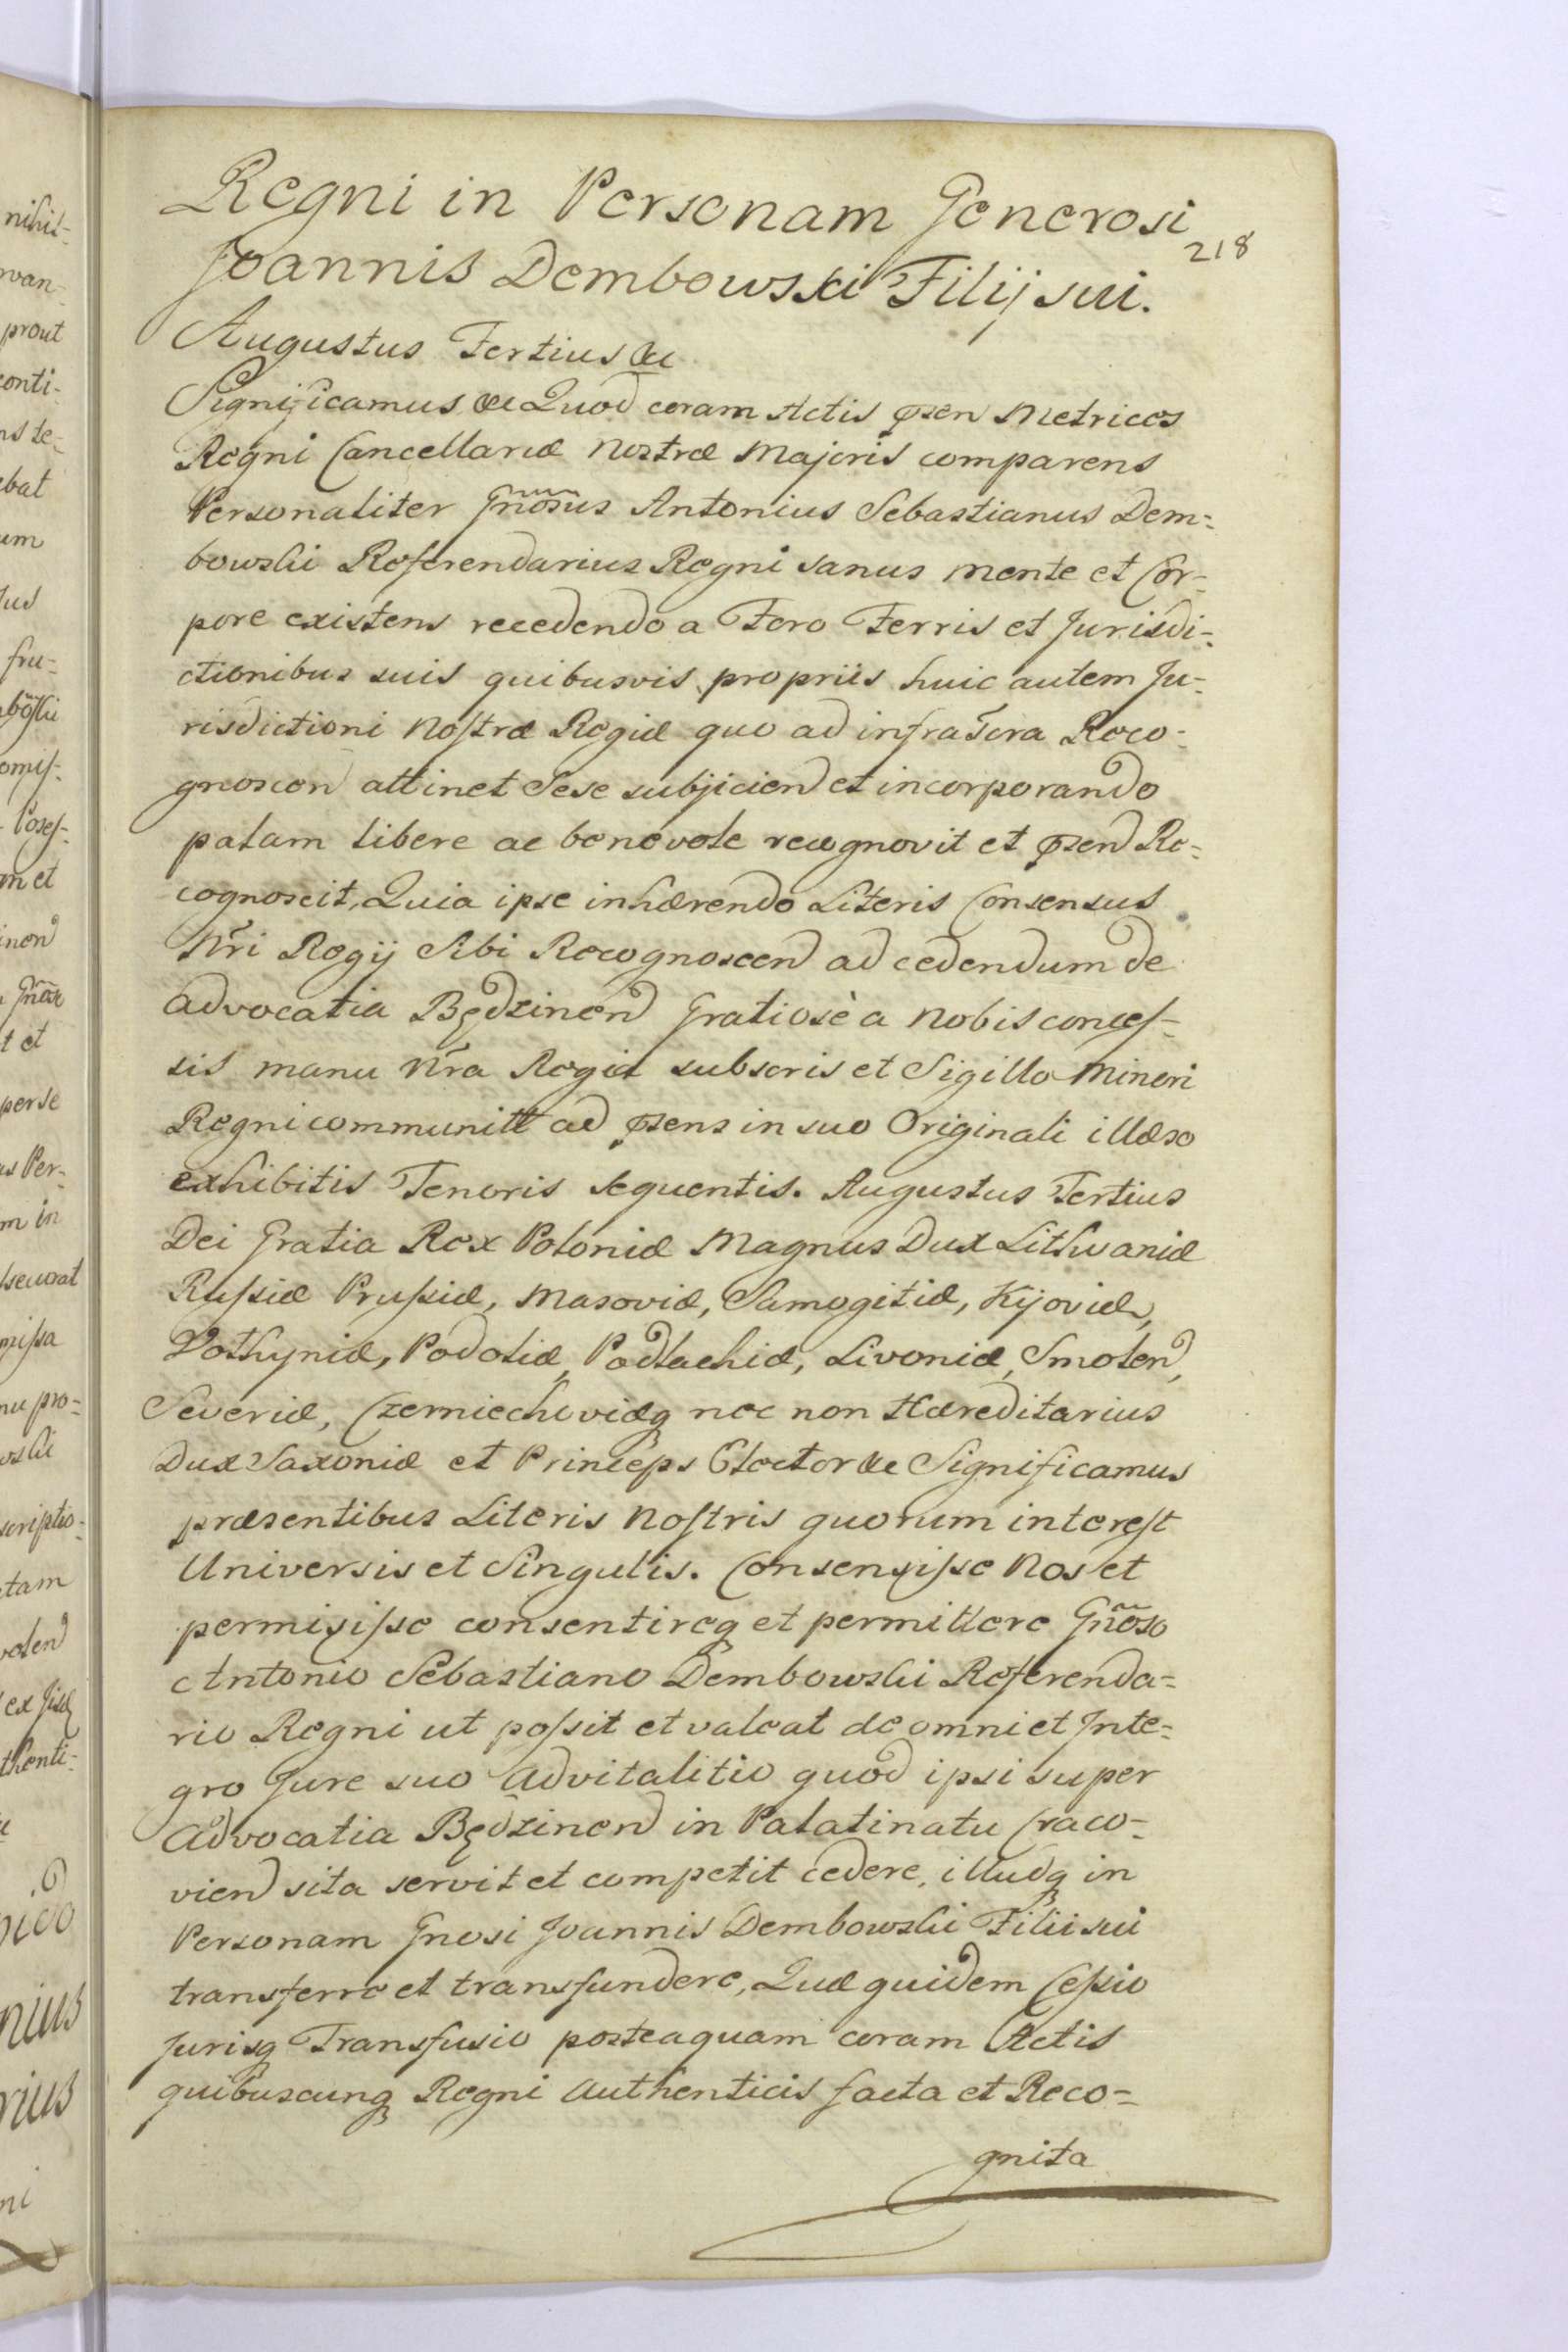 Regni in Personam Generosi
218
Joannis Dembowski Filij sui.
Augustus Tertius &c
Significamus &c Quod coram Actis pñsen Metrices
Regni Cancellariæ Nostræ Majoris comparens
Personaliter Gñosus Antonius Sebastianus Dem=
bowski Referendarius Regni sanus mente et Cor=
pore existens recedendo a Foro Terris et Jurisdi=
ctionibus suis quibusvis propriis huic autem Ju=
risdictioni Nostræ Regiæ quo ad infrascra Reco=
gnoscen attinet Sese subjicien et incorporando
palam libere ac benevole recognovit et pñsen Re=
cognoscit, Quia ipse inhærendo Literis Consensus
Nr̃i Regij Sibi Recognoscen ad cedendum de
Advocatia Będzinen Gratiosè a Nobis conces=
sis manu Nr̃a Regia subscris et Sigillo Minori
Regni communitt ad pñsens in suo Originali illæso
exhibitis Tenoris sequentis. Augustus Tertius
Dei Gratia Rex Poloniæ Magnus Dux Lithvaniæ
Russiæ Prussiæ, Masoviæ, Samogitiæ, Kijoviæ,
Volhyniæ, Podoliæ, Podlachiæ, Livoniæ, Smolen,
Severiæ, Czerniechoviæq nec non Hæreditarius
Dux Saxoniæ et Princeps Elector &c Significamus
præsentibus Literis Nostris quorum interest
Universis et Singulis. Consensisse Nos et
permisisse consentireq et permittere Gñoso
Antonio Sebastiano Dembowski Referenda=
rio Regni ut possit et valeat de omni et Inte=
gro Jure suo Advitalitio quod ipsi super
Advocatia Będzinen in Palatinatu Craco=
vien sita servit et competit cedere, illudq in
Personam Gnosi Joannis Dembowski Filii sui
transferre et transfundere, Quæ quidem Cessio
Jurisq Transfusio posteaquam coram Actis
quibuscunq Regni Authenticis facta et Reco=
gnita